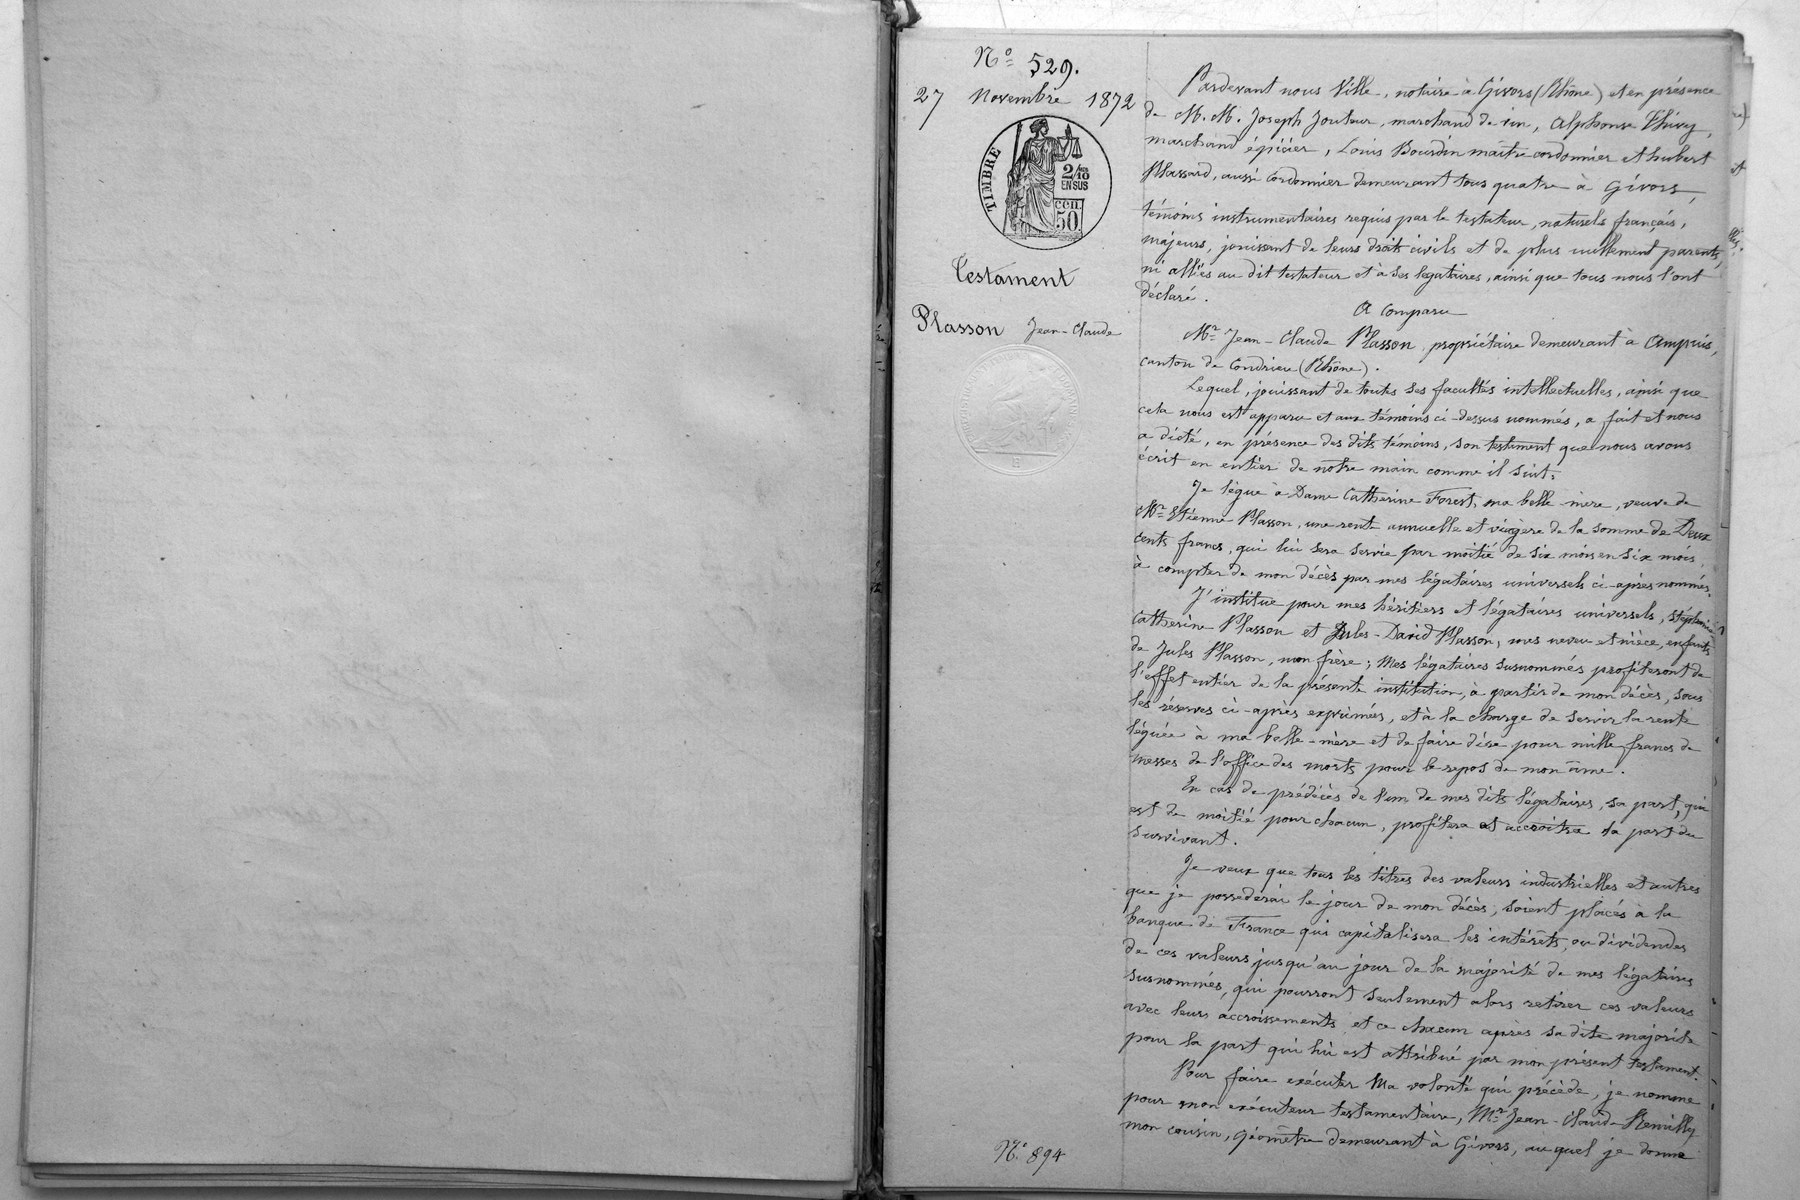 N° 529.
27 Novembre 1872
TIMBRE
2/10 EN SUS
50 CEN.
Testament
Plasson Jean-Claude
Pardevant nous Ville, notaire à Givors (Rhône) et en présence
de M.M. Joseph Jouteur, marchand de vin, Alphonse Thivy,
marchand épicier, Louis Bourdin maître cordonnier et hubert
Massard, aussi cordonnier demeurant tous quatre à Givors,
témoins instrumentaires requis par le testateur, naturels français,
majeurs, jouissant de leurs droits civils et de plus nullement parents,
ni alliés au dit testateur et à ses légataires, ainsi que tous nous l'ont
déclaré.
A comparu
Mr Jean-Claude Plasson, propriétaire demeurant à Ampuis,
canton de Condrieu (Rhône).
Lequel, jouissant de toutes ses facultés intellectuelles, ainsi que
cela nous est apparu et aux témoins ci-dessus nommés, a fait et nous
a dicté, en présence des dits témoins, son testament que nous avons
écrit en entier de notre main comme il suit:
Je lègue à Dame Catherine Forest, ma belle mère, veuve de
Mr Etienne Plasson, une rente annuelle et viagère de la somme de Deux
cents francs, qui lui sera servie par moitié de six mois en six mois,
à compter de mon décès par mes légataires universels ci-après nommés.
J'institue pour mes héritiers et légataires universels, Stéphanie
Catherine Plasson et Jules-David Plasson, mes neveu et nièce, enfants
de Jules Plasson, mon frère; Mes légataires susnommés profiteront de
l'effet entier de la présente institution, à partir de mon décès, sous
les réserves ci-après exprimées, et à la charge de servir la rente
léguée à ma belle-mère et de faire dire pour mille francs de
messes de l'office des morts pour le repos de mon âme.
En cas de prédécès de l'un de mes dits légataires, sa part, qui
est de moitié pour chacun, profitera et accroîtra la part du
survivant.
Je veux que tous les titres des valeurs industrielles et autres
que je possederai le jour de mon décès, soient placés à la
banque de France qui capitalisera les intérêts, ou dividendes
de ces valeurs jusqu'au jour de la majorité de mes légataires
susnommés, qui pourront seulement alors retirer ces valeurs
avec leurs accroissements et ce chacun après sa dite majorité
pour la part qui lui est attribué par mon présent testament.
Pour faire exécuter ma volonté qui précède, je nomme
pour mon exécuteur testamentaire, Mr Jean-Claude Remilly
mon cousin, géomètre demeurant à Givors, auquel je donne
N° 894